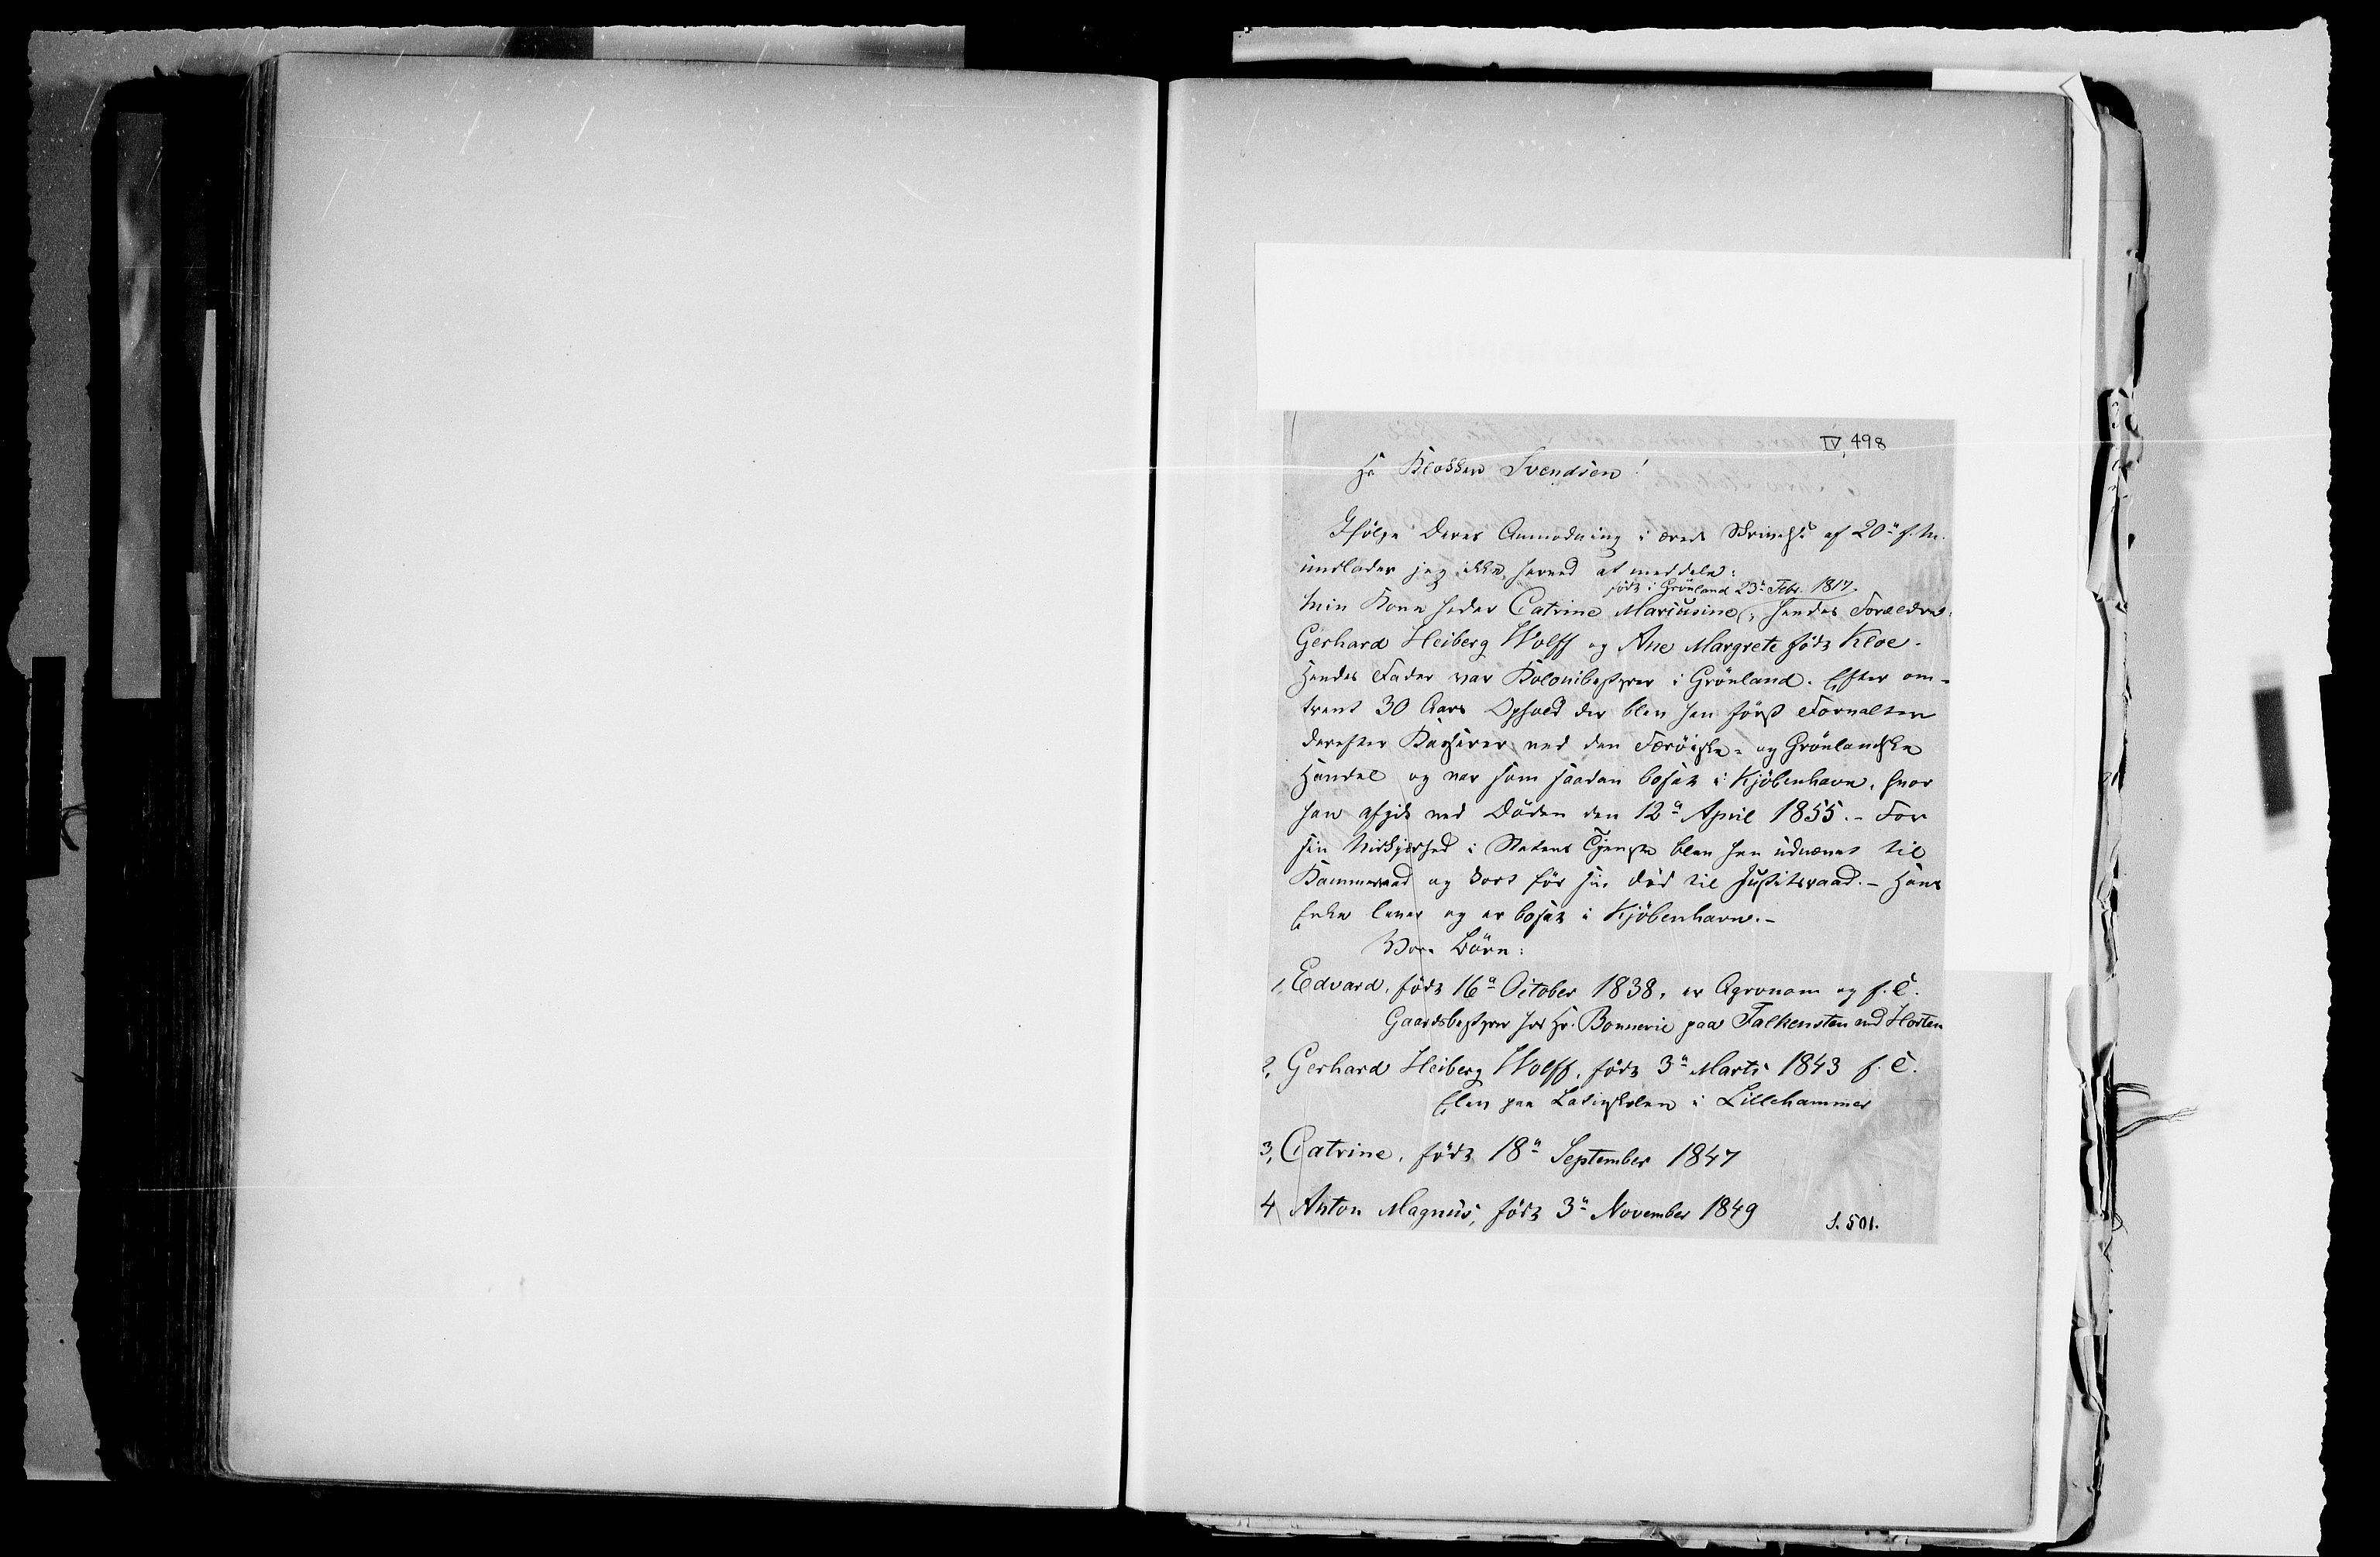 IV, 498
Hr Klokker Svendsen!
Ifölge Deres Anmodning i ærede Skrivelse af 20de f. M.
undlader jeg ikke herved at meddele:
födt i Grönland 23de Febr. 1817.
Min Kone heder Catrine Mariusine, hendes Forældre:
Gerhard Heiberg Wolff og Ane Margrete födt Kloe.
Hendes Fader var Kolonibestyrer i Grönland. Efter om-
trent 30 Aars Ophold der blev han först Forvalter
derefter Kasserer ved den Færöiske- og Grönlandske
Handel og var som saadan bosat i Kjöbenhavn, hvor
han afgik ved Döden den 12te April 1855. – For
sin Virksomhed i Statens Tjeneste blev han udnævnt til
Kammerraad og kort för sin Död til Justitsraad. – Hans
Enke lever og er bosat i Kjöbenhavn. –
Vore Börn:
1, Edvard, födt 16de October 1838, er Agronom og f. T.
Gaardsbestyrer hos Hr. Bonnevie paa Falkensten ved Horten
2, Gerhard Heiberg Wolff, födt 3de Marts 1843 f. T.
Elev paa Latinskolen i Lillehammer
3, Catrine, födt 18de September 1847
4 Anton Magnus, födt 3de November 1849
S. 501.